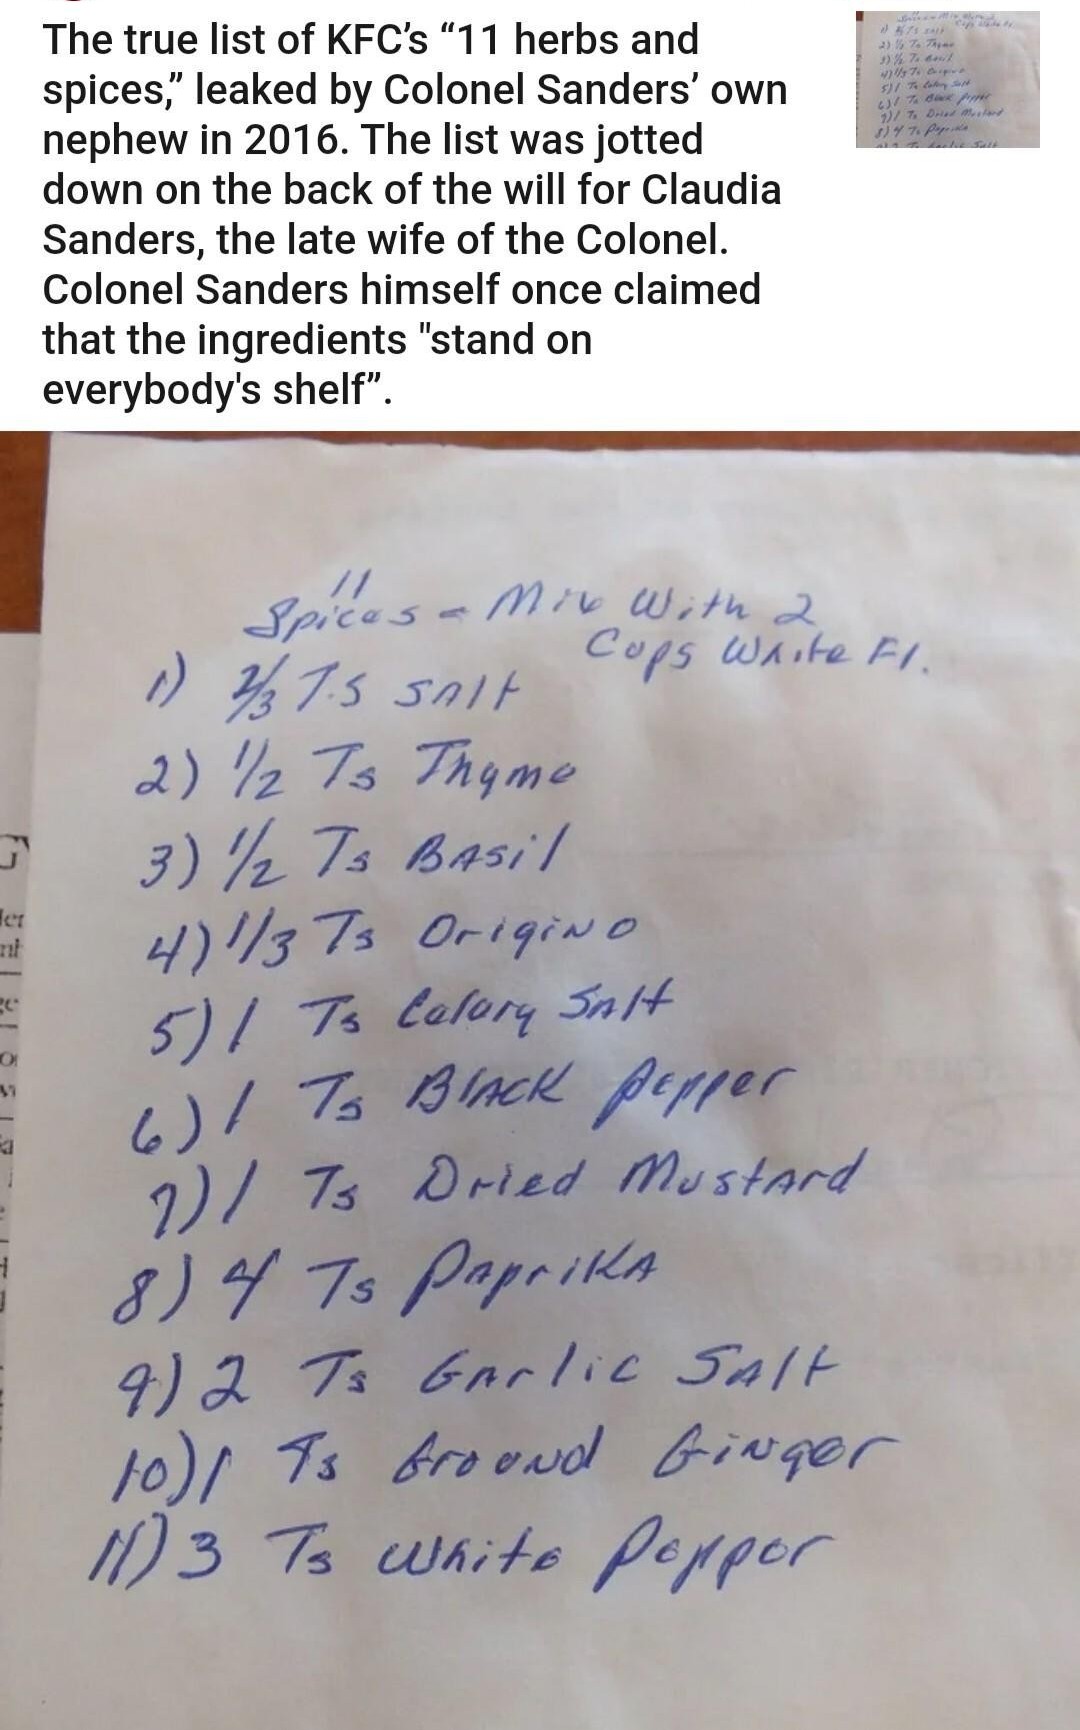 The true list of KFC’s “11 herbs and
spices,” leaked by Colonel Sanders’ own
nephew in 2016. The list was jotted
down on the back of the will for Claudia
Sanders, the late wife of the Colonel.
Colonel Sanders himself once claimed
that the ingredients "stand on
everybody's shelf”.
11
Spices - Mix With 2
Cups White Fl.
1) 2/3 T.S SAlt
2) 1/2 Ts Thyme
3) 1/2 Ts BAsil
4) 1/3 Ts OrigiNo
5) 1 Ts Celary SAlt
6) 1 Ts BlAcK pepper
7) 1 Ts Dried MustArd
8) 4 Ts PAprikA
9) 2 Ts GArlic SAlt
10) 1 Ts Ground GiNger
11) 3 Ts White Pepper